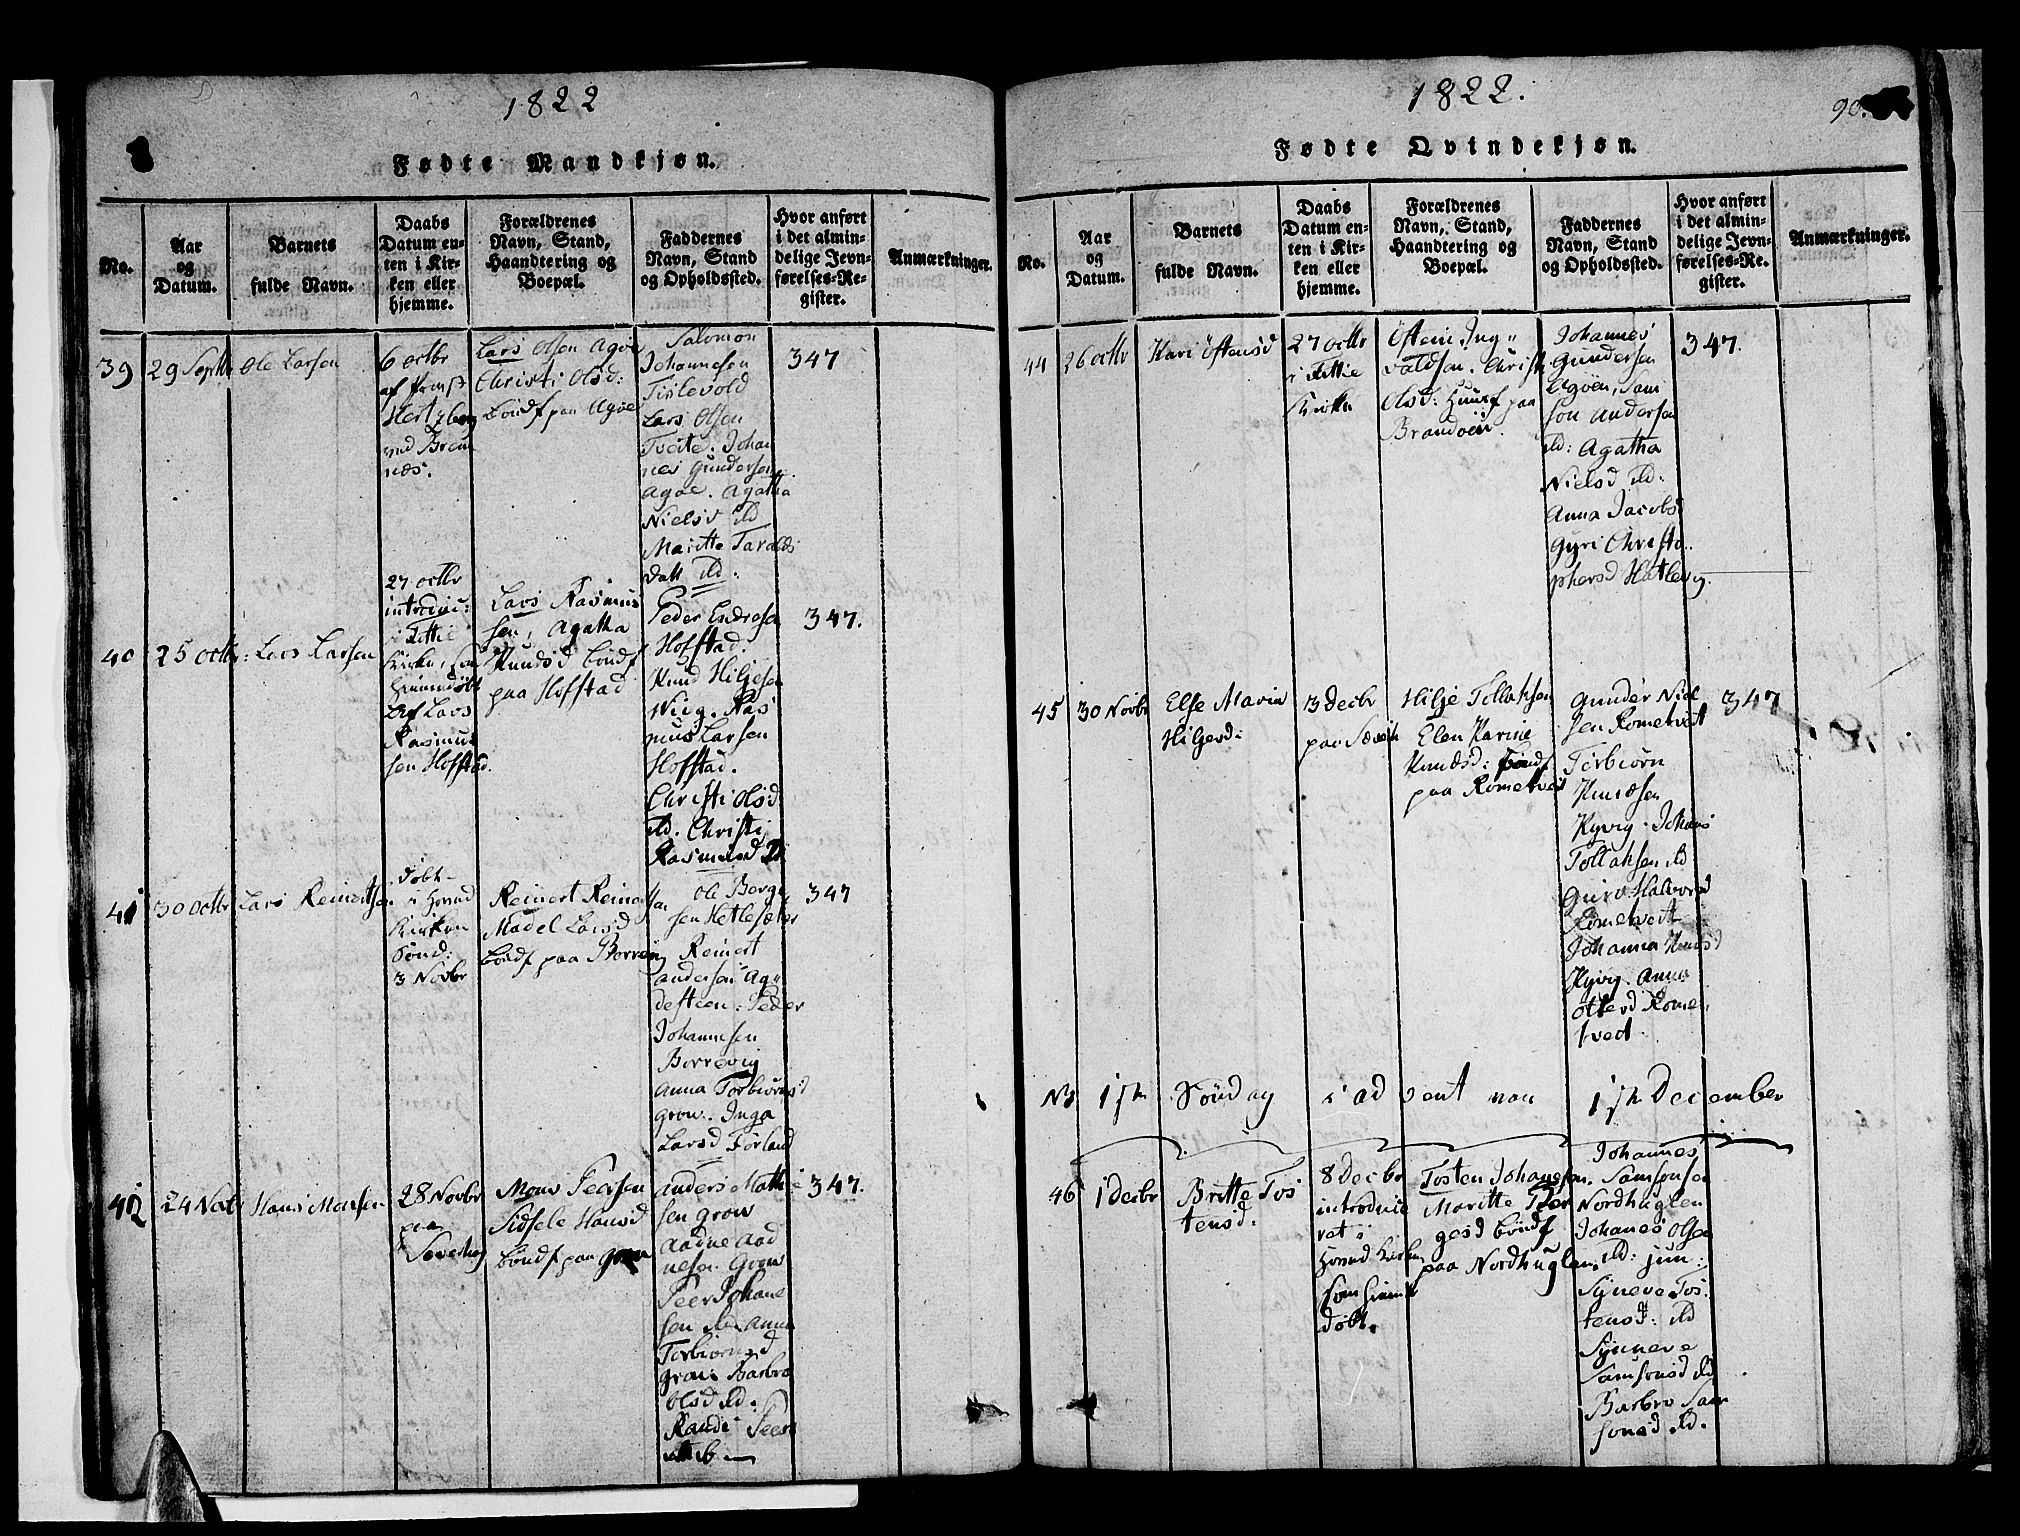 1822
Fødte Mandkjøn.
No.
Aar
og
Datum.
Barnets
fulde Navn.
Daabs
Datum en-
ten i Kir-
ken eller
hjemme.
Forældrenes
Navn, Stand,
Haandtering og
Boepæl.
Faddernes
Navn, Stand
og Opholdssted.
Hvor anført
i det almin-
delige Jevn-
førelses-Re-
gister.
Anmærkninger.
39
29 Septbr
Ole Larsen
6 octbr
af Præst
Hertzberg
ved Brem
næs.
Lars Olsen Agøe
Christi Olsd:
böndf paa Agøe
Salomon
Johannesen
Tislevold
Lars Olsen
Tveite. Johan
nes Gundersen
Agøe. Agatha
Nielsd ibd
Maritte Taralds
datt ibd:
347
40
25 octbr:
Lars Larsen
27 octbr
introduc:
i Fittie
Kirke, som
hiemdøbt
af Lars
Rasmus
sen Hofstad.
Lars Rasmus
sen, Agatha
Knudsd böndf
paa Hofstad
Peder Endresen
Hofstad.
Knud Hiljesen
Wiig. Ras
mus Larsen
Hofstad.
Christi Olsd
ibd. Christi
Rasmusd
347.
41
30 octbr
Lars Reinertsen
döbt
i Hovud
Kirken
Sönd:
3 Novbr
Reinert Reinertsen
Madel Larsd
böndf paa Borrevig
Ole Berge
sen Hetlesæter
Reinert
Andersen Ag
desteen: Peder
Johannesen
Borrevig
Anna Torbiörnsd
Grow. Inga
Larsd Förland
347
42
24 Nov
Hans Monsen
28 Novbr
paa
Sævertvig
Mons Peersen
Sidsele Hansd
böndf paa Grow
Anders Mathie
sen Grow
Aadne Aad
nesen Grow
Peer Johane
sen Anna
Torbiörnsd
Grow Barbro
Olsd ibd.
Randi Peers
347.
1822.
90.
Fødte Qvindekjøn.
No.
Aar
og
Datum.
Barnets
fulde Navn.
Daabs
Datum en-
ten i Kir-
ken eller
hjemme.
Forældrenes
Navn, Stand,
Haandtering og
Boepæl.
Faddernes
Navn, Stand
og Opholdssted.
Hvor anført
i det almin-
delige Jevn-
førelses-Re-
gister.
Anmærkninger.
44
26 octbr
Kari Öftensd
27 octbr
i Fittie
Kirke
Öften Ing
valdsen. Christi
Olsd: Huusf paa
Brandöen.
Johannes
Gundersen
Agöen, Sam
son Andersen
ibd: Agatha
Nielsd ibd:
Anna Jacobs
Gyri Christo
phersd Hatlevig.
347.
45
30 Novbr
Else Maria
Hiljesd:
3 Decbr
paa Sævertv
Hilje Tollaksen
Elen Karine
Knudsd: böndf
paa Rometvet
Gunder Niel
sen Rometvet
Torbiörn
Knudsen
Kyvig. Johans
Tollaksen ibd
Guro Halvorsd
Rometvet
Johanna Knudsd
Kyvig. Anna
Ottersd Rome
tvedt
347
NB 1ste Søndag i advent var 1ste December
46
1 Decbr
Britte Tos
tensd:
8 Decbr
introduce
ret i
Hovud Kirken
som hiem
döbt.
Tosten Johanesen.
Maritte Tor
gesd böndf
paa Nordhuglen.
Johannes
Samsonsen
Nordhuglen
Johanes Olsen
ibd: jun:
Synneve Tos
tensd: ibd
Synneve
Samsonsd ibd
Barbro Sam
sonsd ibd.